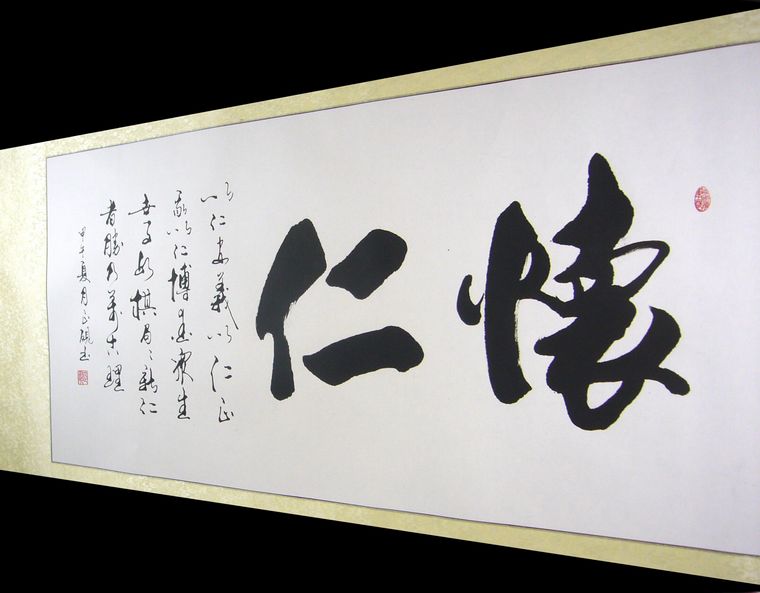 懷仁
以仁安義以仁正
我以仁博愛眾生
世事如棋局局新仁
者勝乃萬古理
甲午夏月正書